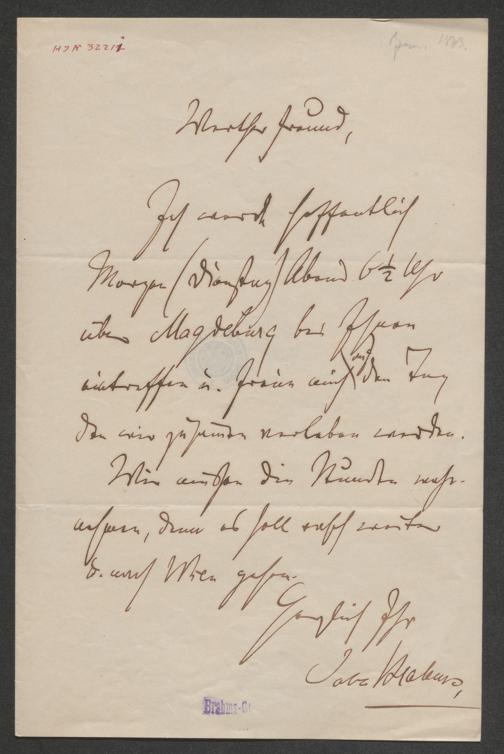 HIN 3221
Jan. 1873.
Werther Freund,
Ich werde hoffentlich
Morgen (Dienstag) Abend 6 1/2 Uhr
über Magdeburg bei Ihnen
eintreffen u. freue mich auf den Tag
den wir zusammen verleben werden.
Wir müssen die Stunden wahr-
nehmen, denn es soll rasch weiter
u. nach Wien gehen.
Herzlich Ihr
Joh. Brahms,
Brahms-G